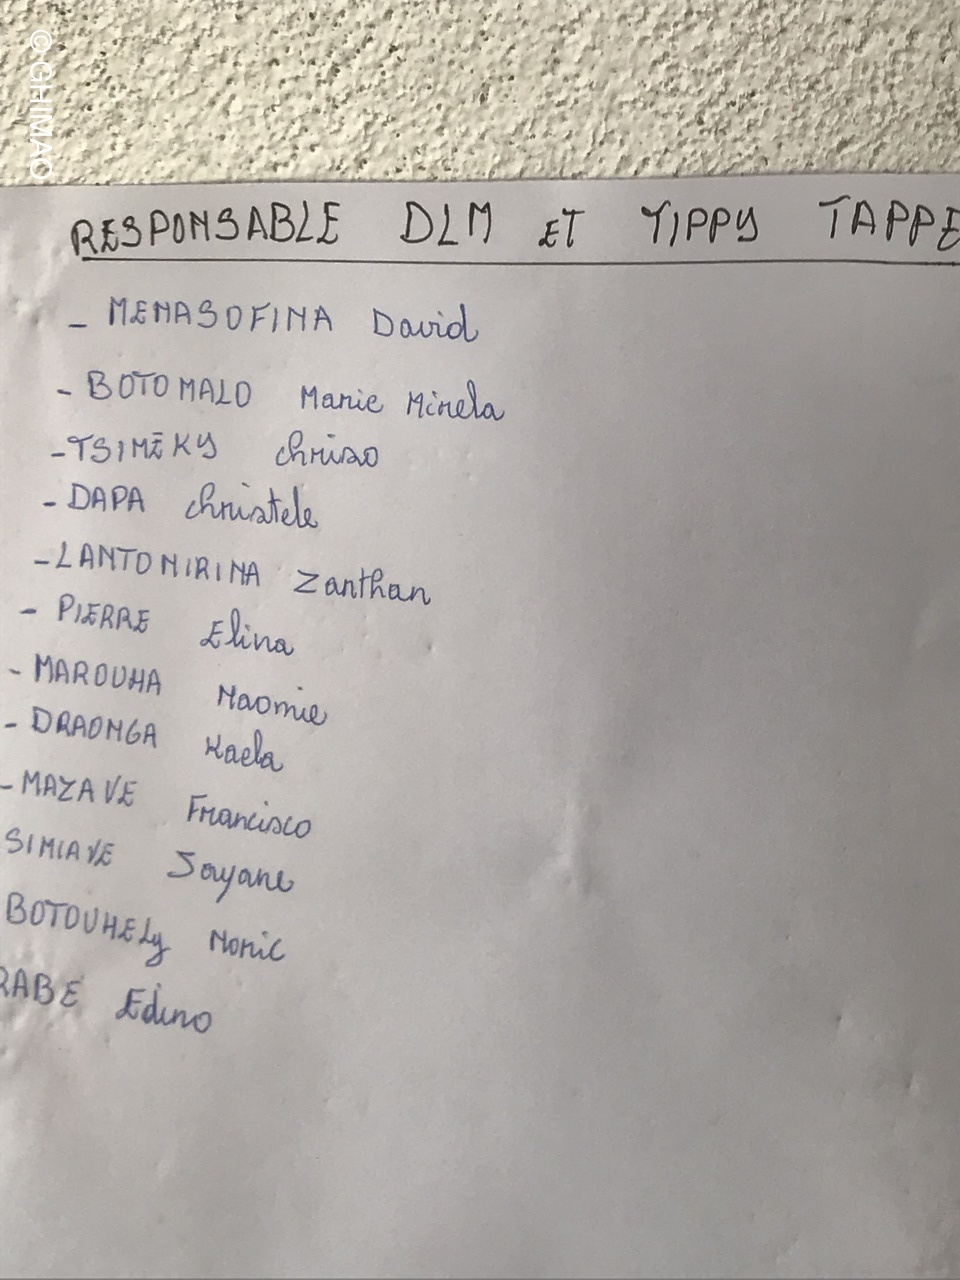 © GHIMAO
RESPONSABLE DLM ET TIPPY TAPPE
- MENASOFINA David
- BOTOMALO Marie Minela
- TSIMĒKY chriso
- DAPA christele
- LANTONIRINA Zanthan
- PIERRE Elina
- MAROUHA Naomie
- DRAONGA Kaela
- MAZAVE Francisco
SIMIAVE Soyane
BOTOUHELY Monic
RABE Edino